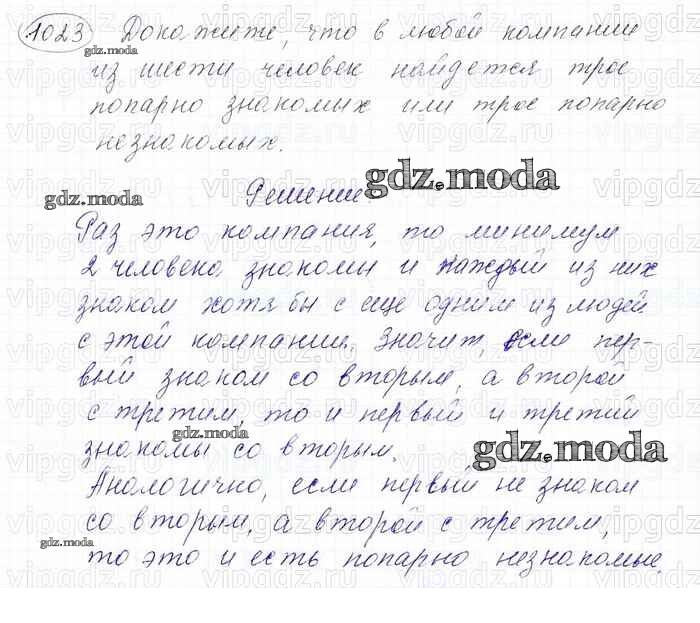 1023 Докажите, что в любой компании
gdz.moda
из шести человек найдется трое
попарно знакомых или трое попарно
незнакомых.
gdz.moda
Решение
gdz.moda
Раз это компания, то минимум
2 человека знакомы и каждый из них
знаком хотя бы с еще одним из людей
с этой компании. Значит, если пер-
вый знаком со вторым, а второй
с третим, то и первый и третий
gdz.moda
знакомы со вторым.
gdz.moda
Аналогично, если первый не знаком
со вторым, а второй с третим,
gdz.moda
то это и есть попарно незнакомые.